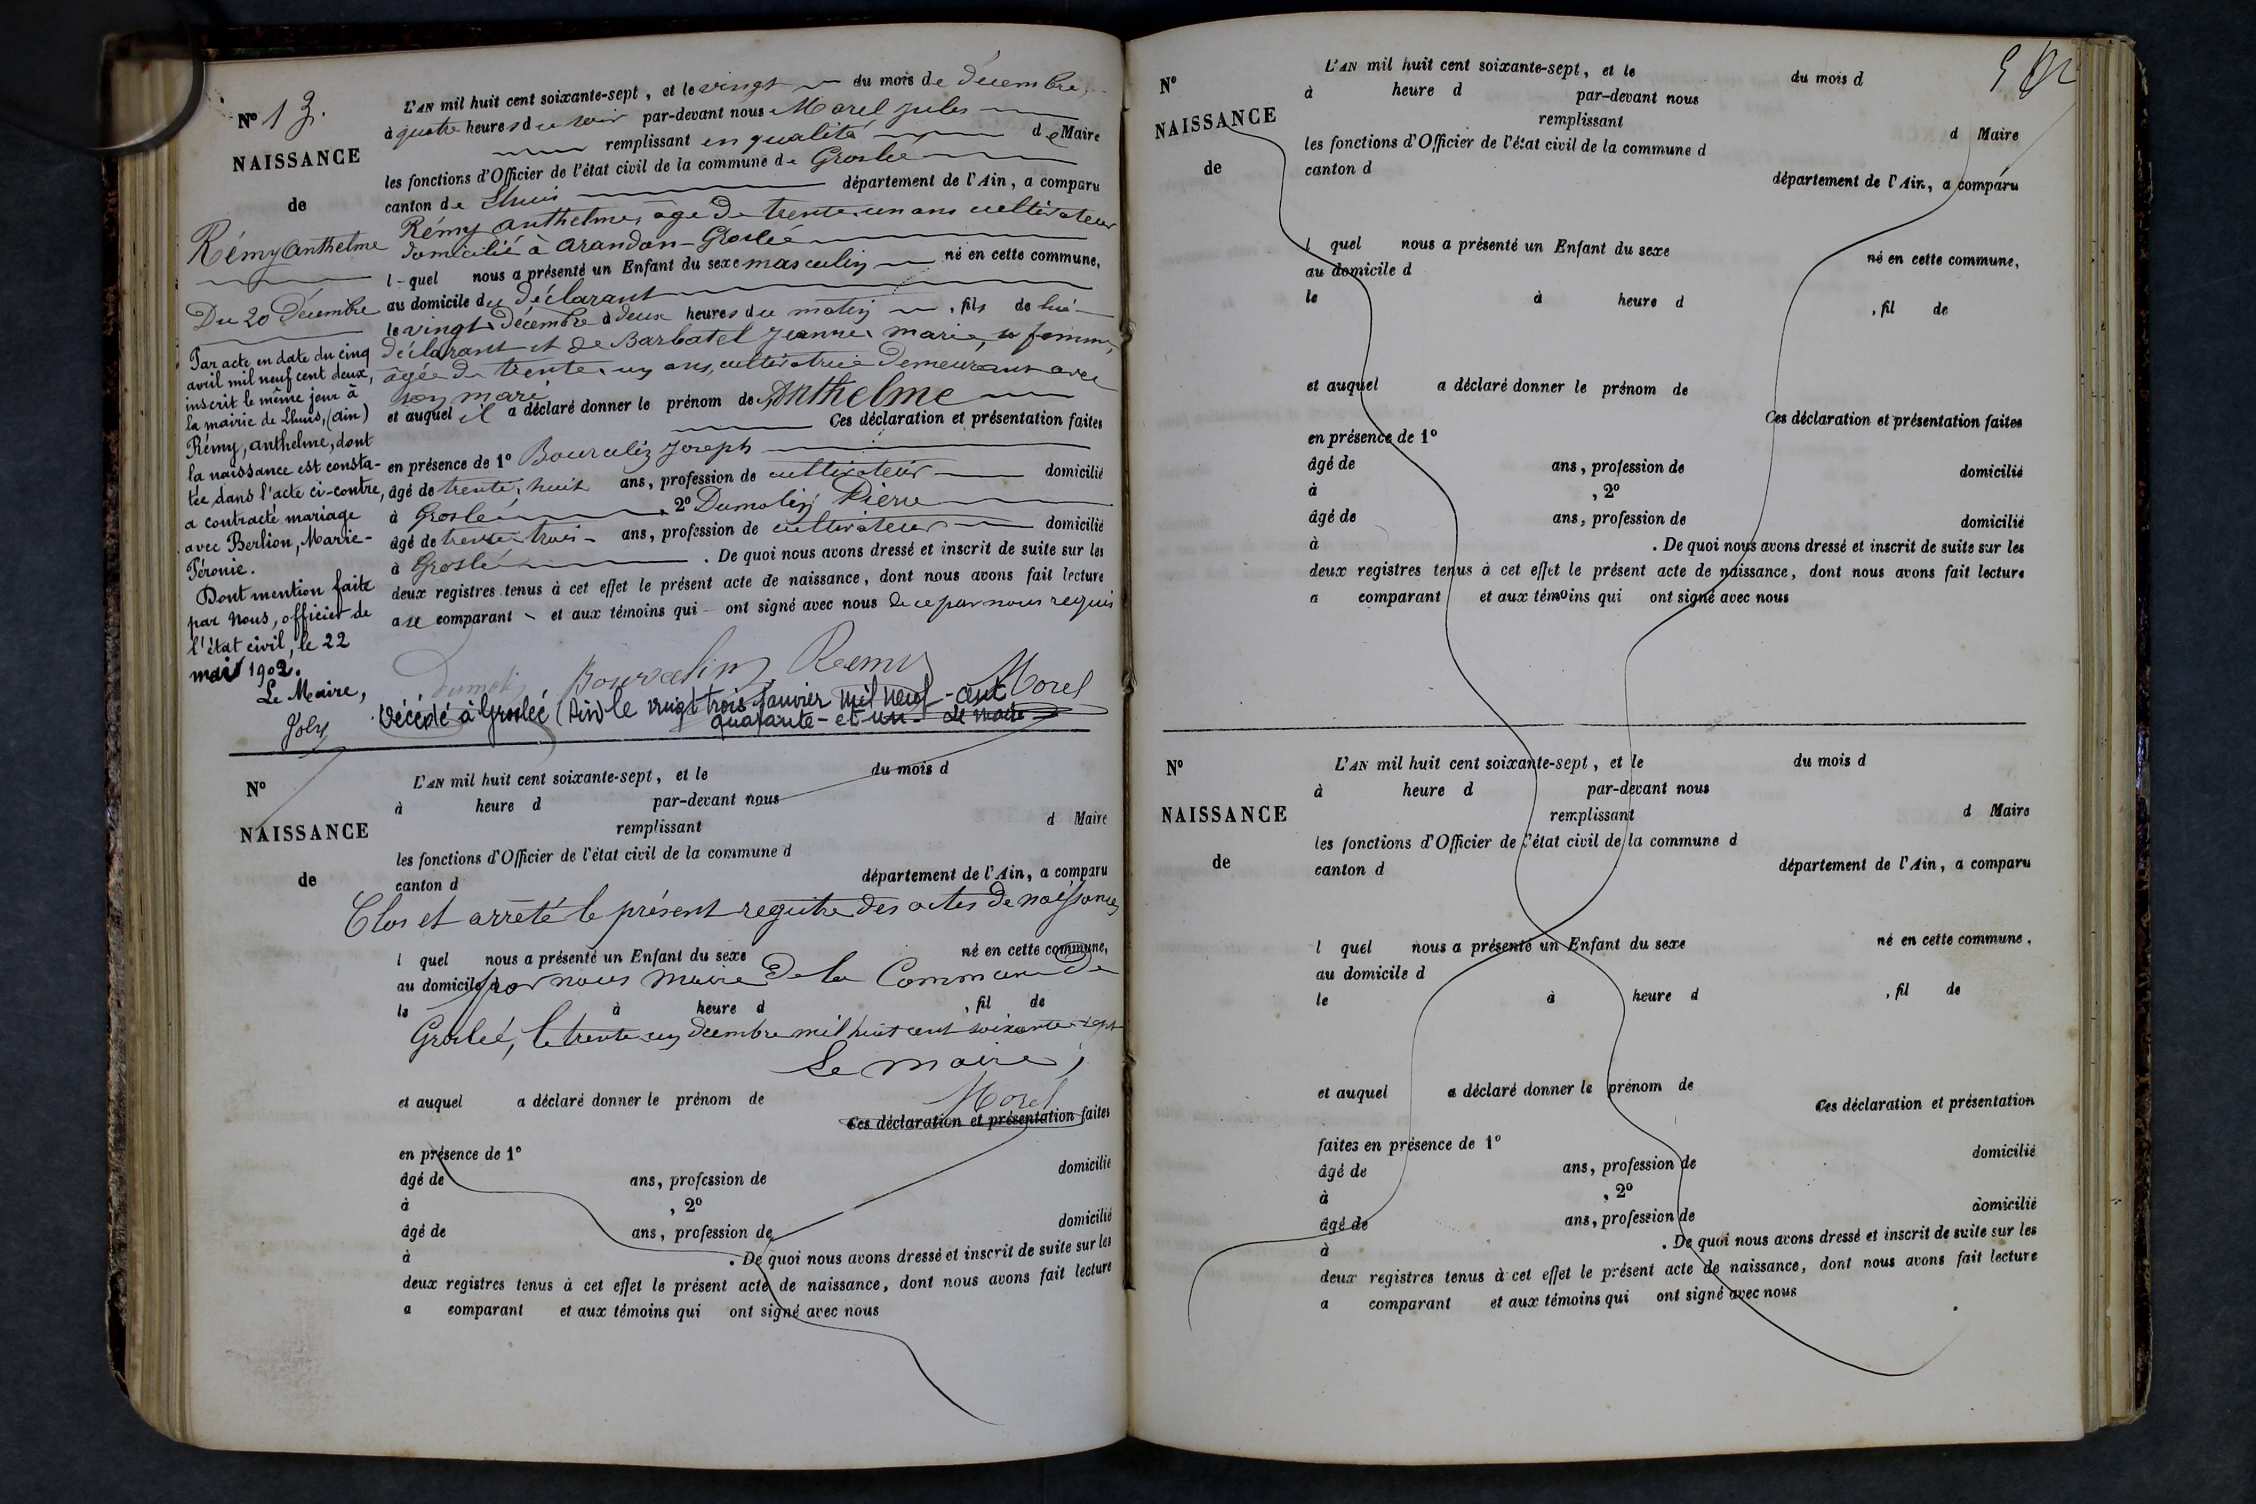 N° 13.
NAISSANCE
de
Rémy Anthelme
Du 20 Décembre
Par acte en date du cinq
avril mil neuf cent deux,
inscrit le même jour à
la mairie de Lhuis, (Ain)
Rémy, Anthelme, dont
la naissance est consta-
tée dans l'acte ci-contre,
a contracté mariage
avec Berlion, Marie-
Péronie.
Dont mention faite
par Nous, officier de
l'état civil, le 22
mai 1902.
Le Maire,
Joly
L'AN mil huit cent soixante-sept, et le vingt du mois de décembre,
à quatre heures du soir par-devant nous Morel Jules
remplissant en qualité de Maire
les fonctions d'Officier de l'état civil de la commune de Groslée
canton de Lhuis département de l'Ain, a comparu
Rémy Anthelme, âgé de trente un ans cultivateur
domicilié à Arandon-Groslée
l quel nous a présenté un Enfant du sexe masculin né en cette commune,
au domicile du déclarant
le vingt décembre à deux heures du matin, fils de lui
déclarant et de Barbatel Jeanne Marie, sa femme,
âgée de trente un ans, cultivatrice demeurant avec
son mari
et auquel il a déclaré donner le prénom de Anthelme
Ces déclaration et présentation faites
en présence de 1° Bourcelin Joseph
âgé de trente huit ans, profession de cultivateur domicilié
à Groslée, 2° Dumolin Pierre
âgé de trente trois ans, profession de cultivateur domicilié
à Groslée. De quoi nous avons dressé et inscrit de suite sur les
deux registres tenus à cet effet le présent acte de naissance, dont nous avons fait lecture
au comparant et aux témoins qui ont signé avec nous de ce par nous requis
Dumolin Bourcelin Remy Morel
Décédé à Groslée (Ain) le vingt trois Janvier mil neuf-cent
quarante-et-un
N°
NAISSANCE
de
L'AN mil huit cent soixante-sept, et le du mois d
à heure d par-devant nous
remplissant d Maire
les fonctions d'Officier de l'état civil de la commune d
canton d département de l'Ain, a comparu
Clos et arrêté le présent registre des actes de naissances
l quel nous a présenté un Enfant du sexe né en cette commune,
au domicile d
par nous maire de la Commune de
le à heure d , fil de
Groslée, le trente un décembre mil huit cent soixante-sept
Le maire,
Morel
et auquel a déclaré donner le prénom de
Ces déclaration et présentation faites
en présence de 1°
âgé de ans, profession de domicilié
à , 2°
âgé de ans, profession de domicilié
à . De quoi nous avons dressé et inscrit de suite sur les
deux registres tenus à cet effet le présent acte de naissance, dont nous avons fait lecture
a comparant et aux témoins qui ont signé avec nous
N°
NAISSANCE
de
L'AN mil huit cent soixante-sept, et le du mois d
à heure d par-devant nous
remplissant d Maire
les fonctions d'Officier de l'état civil de la commune d
canton d département de l'Ain, a comparu
l quel nous a présenté un Enfant du sexe né en cette commune,
au domicile d
le à heure d , fil de
et auquel a déclaré donner le prénom de
Ces déclaration et présentation faites
en présence de 1°
âgé de ans, profession de domicilié
à , 2°
âgé de ans, profession de domicilié
à . De quoi nous avons dressé et inscrit de suite sur les
deux registres tenus à cet effet le présent acte de naissance, dont nous avons fait lecture
a comparant et aux témoins qui ont signé avec nous
N°
NAISSANCE
de
L'AN mil huit cent soixante-sept, et le du mois d
à heure d par-devant nous
remplissant d Maire
les fonctions d'Officier de l'état civil de la commune d
canton d département de l'Ain, a comparu
l quel nous a présenté un Enfant du sexe né en cette commune,
au domicile d
le à heure d , fil de
et auquel a déclaré donner le prénom de
Ces déclaration et présentation
faites en présence de 1°
âgé de ans, profession de domicilié
à , 2°
âgé de ans, profession de domicilié
à . De quoi nous avons dressé et inscrit de suite sur les
deux registres tenus à cet effet le présent acte de naissance, dont nous avons fait lecture
a comparant et aux témoins qui ont signé avec nous